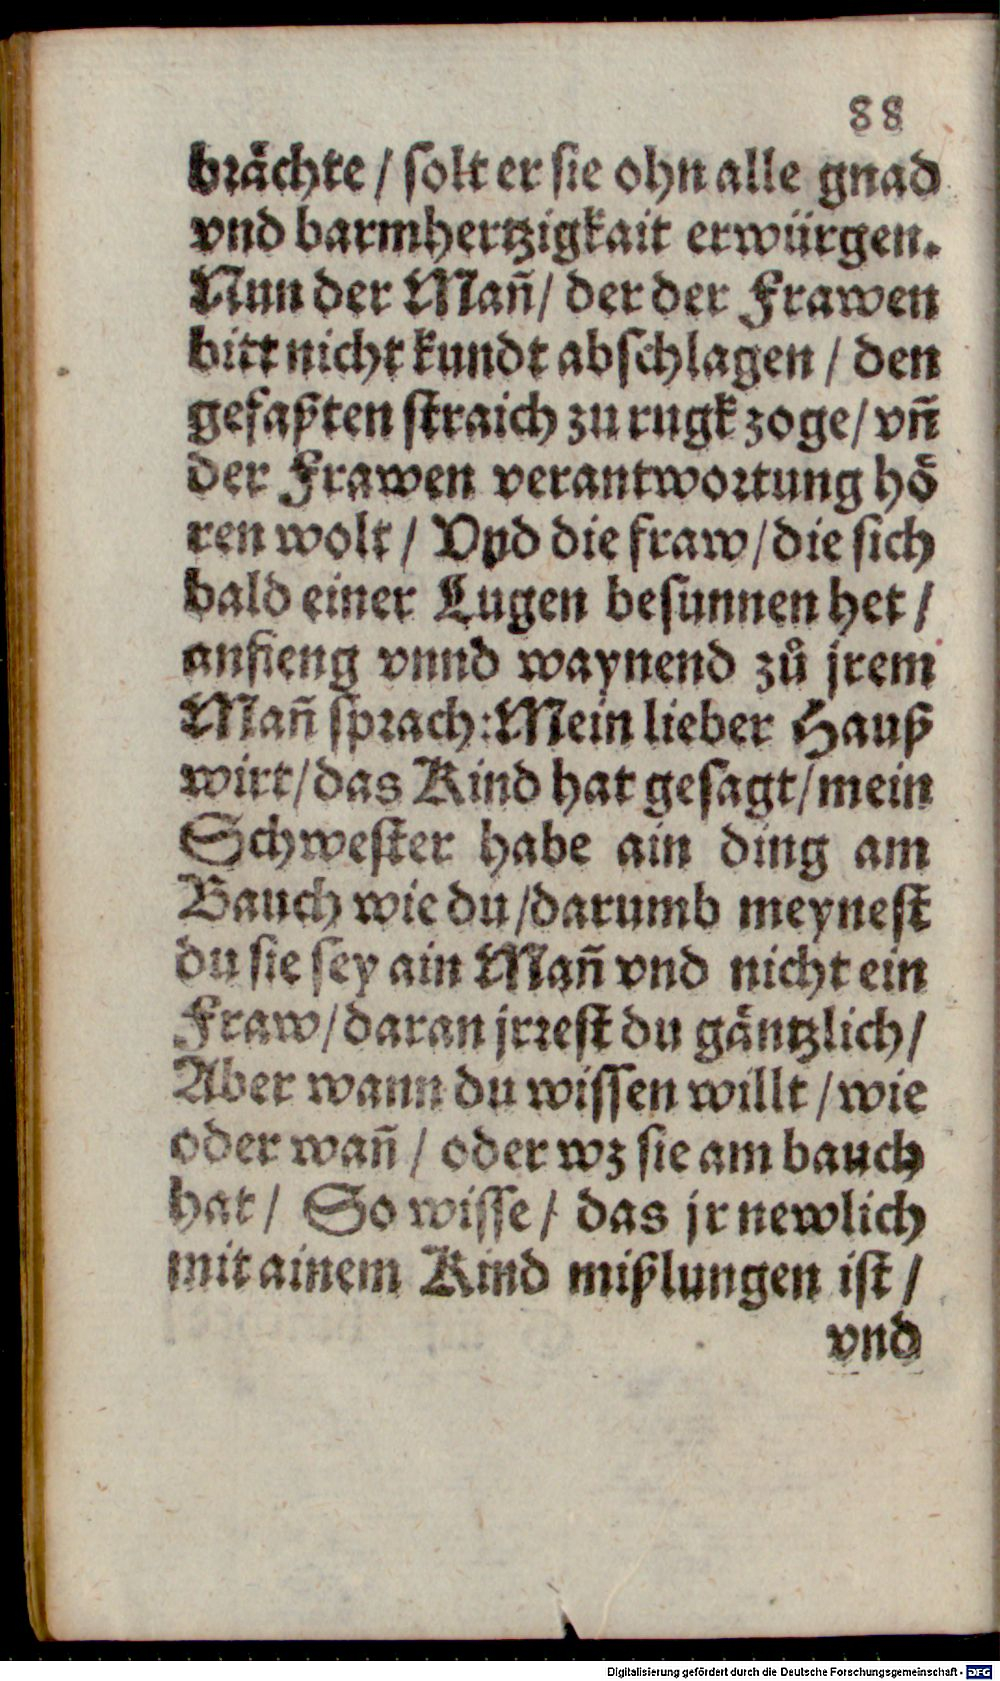 88
brächte / solt er sie ohn alle gnad
vnd barmhertzigkait erwürgen.
Nun der Mañ / der der Frawen
bitt nicht kundt abschlagen / den
gefaßten straich zu rugk zoge / vñ
der Frawen verantwortung hö
ren wolt / Vnd die fraw / die sich
bald einer Lugen besunnen het /
anfieng vnnd waynend zů jrem
Mañ sprach: Mein lieber Hauß
wirt / das Kind hat gesagt / mein
Schwester habe ain ding am
Bauch wie du / darumb meynest
du sie sey ain Mañ vnd nicht ein
Fraw / daran jrrest du gäntzlich /
Aber wann du wissen willt / wie
oder wañ / oder wz sie am bauch
hat / So wisse / das jr newlich
mit ainem Kind mißlungen ist /
vnd
Digitalisierung gefördert durch die Deutsche Forschungsgemeinschaft - DFG